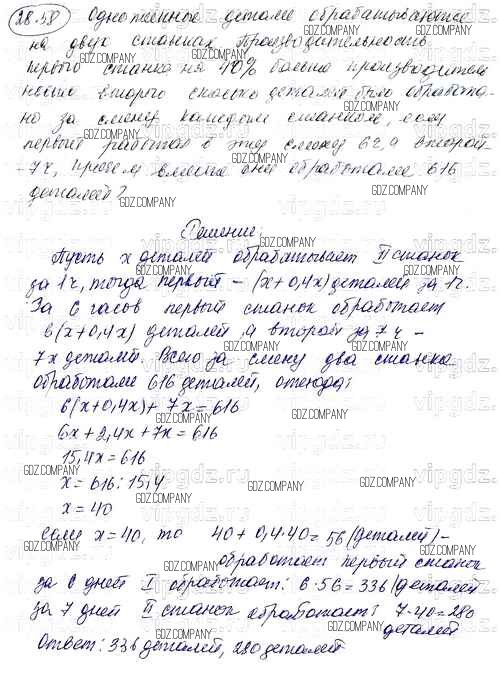 28.58 Одинаковые детали обрабатываются
на двух станках. Производительность
первого станка на 40% больше производитель
ности второго сколько деталей было обработа-
но за смену каждым станком, если
первый работал в эту смену 6ч, а второй
- 7ч, причем вместе они обработали 616
деталей?
Решение:
Пусть x деталей обрабатывает II станок
за 1ч, тогда первый – (x+0,4x) деталей за 1ч.
За 6 часов первый станок обработает
6(x+0,4x) деталей, а второй за 7ч –
7x деталей. Всего за смену два станка
обработали 616 деталей, отсюда:
6(x+0,4x)+7x=616
6x+2,4x+7x=616
15,4x=616
x=616:15,4
x=40
Если x=40, то 40+0,4·40=56 (деталей) –
обработает первый станок
за 6 дней I обработает: 6·56=336 (деталей
за 7 дней II станок обработает: 7·40=280
деталей
Ответ: 336 деталей, 280 деталей
GDZ.COMPANY
vipgdz.ru